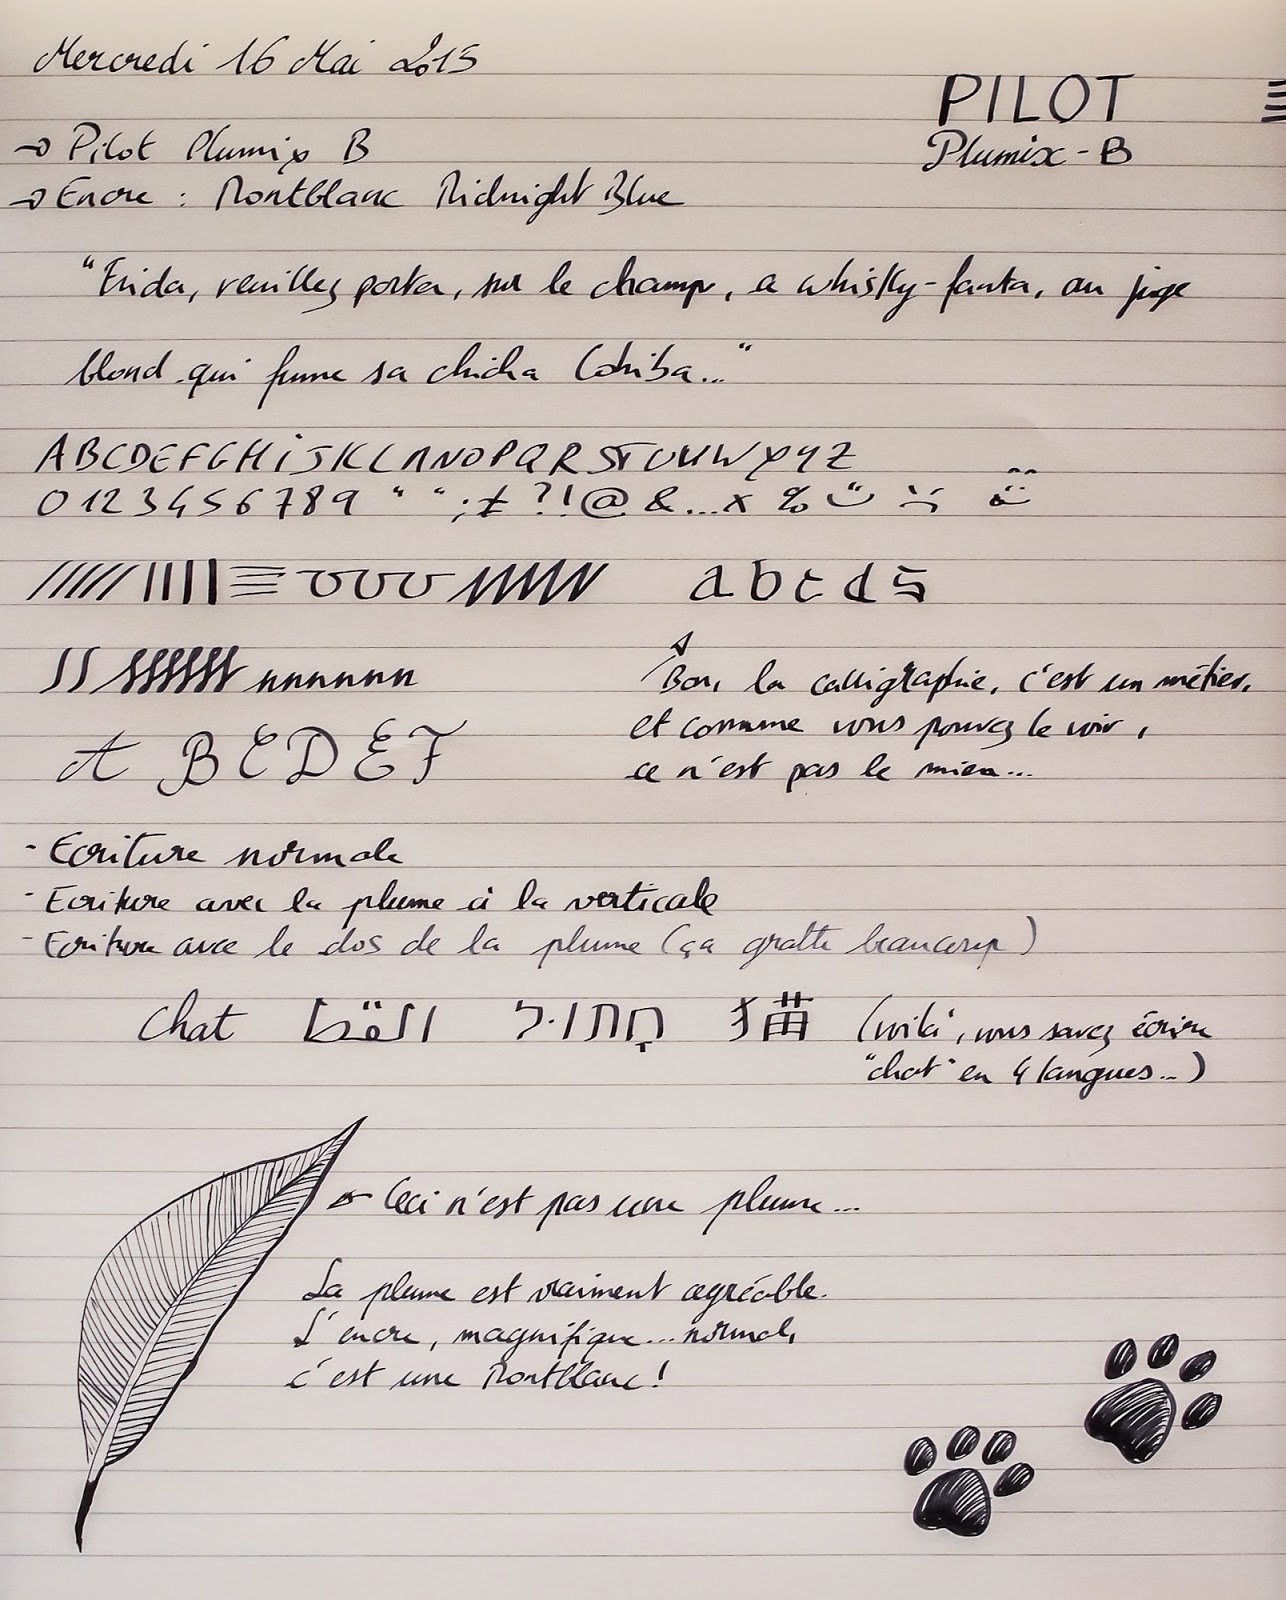 Mercredi 16 Mai 2015
PILOT
Plumix - B
→ Pilot Plumix B
→ Encre : Montblanc Midnight Blue
"Frida, veuillez porter, sur le champ, a whisky-fanta, au juge
blond qui fume sa chicha Cohiba..."
ABCDEFGHiJKLMNOPQRSTUVWXYZ
0123456789 " " ; ≠ ?!@ &...x %
a b c d s
Bon, la calligraphie, c'est un métier,
et comme vous pouvez le voir,
ce n'est pas le mien...
A B C D E F
- Ecriture normale
- Ecriture avec la plume à la verticale
- Ecriture avec le dos de la plume (ça gratte beaucoup)
Chat القط חָתוּל 猫 (voilà, vous savez écrire
"chat" en 4 langues...)
Ceci n'est pas une plume...
La plume est vraiment agréable.
L'encre, magnifique... normal,
c'est une Montblanc !